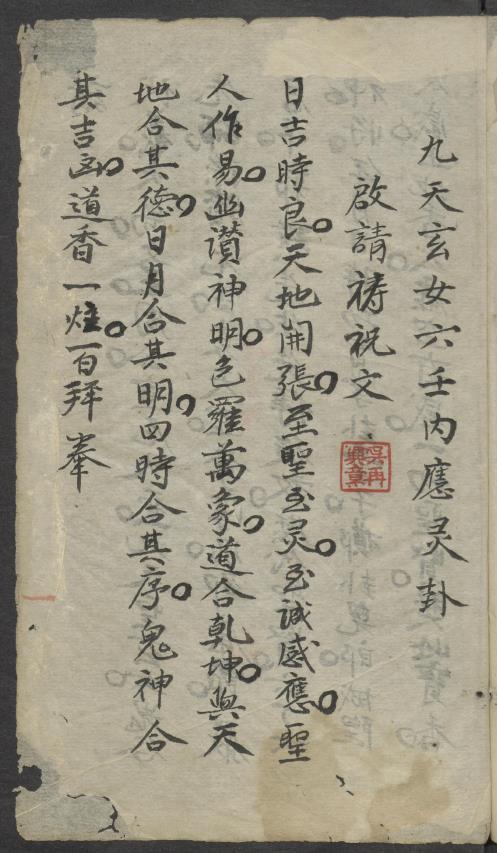 九天玄女六壬內應灵卦
啟請祷祝文
日吉時良天地開張至聖至灵至诚感應聖
人作易幽讃神明包羅萬象道合乾坤與天
地合其德日月合其明四時合其序鬼神合
其吉凶道香一炷百拜奉